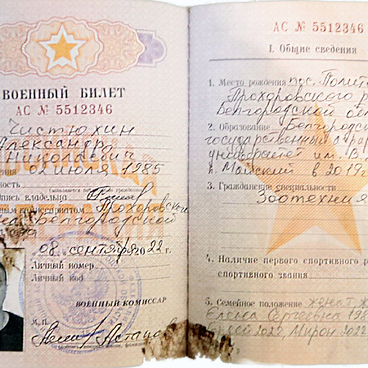 ВОЕННЫЙ БИЛЕТ
АС № 5512346
Чистюхин
Александр
Николаевич
02 июля 1985
(заполняется
пись владельца
Прохоровского
Белгородской
08 сентября 22 г.
Личный номер
Личный код
ВОЕННЫЙ КОМИССАР
М.П.
АС № 5512346
I. Общие сведения
1. Место рождения пос. Полит
Прохоровского р
Белгородской о
2. Образование Белгородс
государственный аграр
университет им. В
Майский в 20
3. Гражданские специальности
Зоотехния
4. Наличие первого спортивного р
спортивного звания
5. Семейное положение женат ж
Елена Сергеевна 198
2022 Мирон 2022